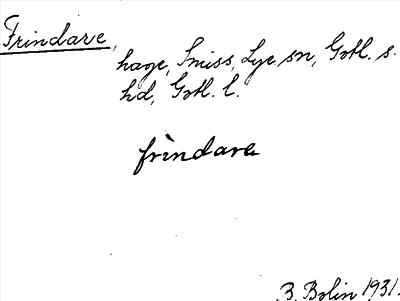 Frindare,
hage, Smiss, Lye sn, Gotl. s.
hd, Gotl. l.
frìndara
B. Bolin 1931.